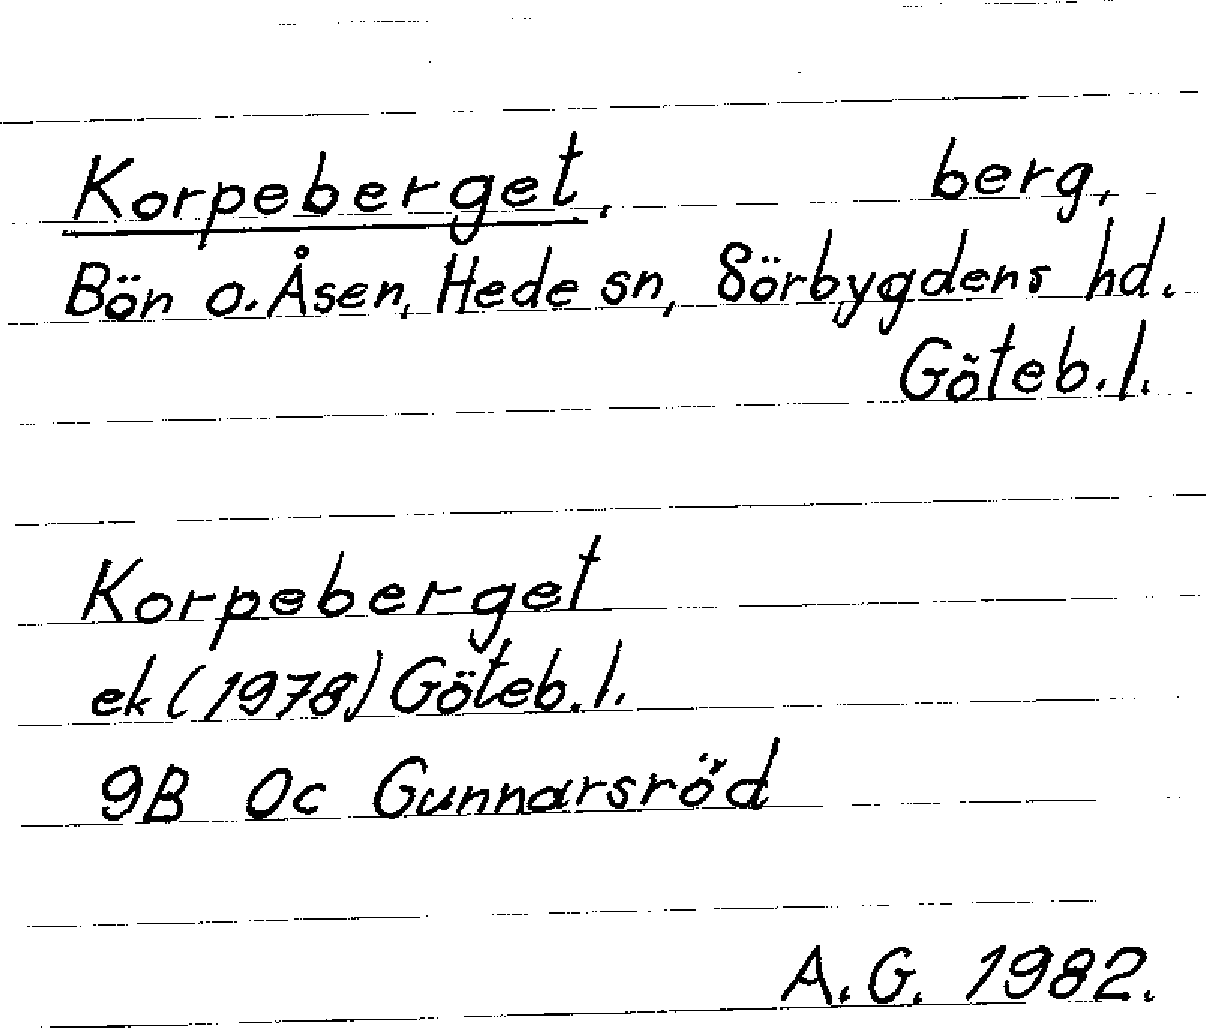 Korpeberget, berg,
Bön o. Åsen, Hede sn, Sörbygdens hd.
Göteb. l.
Korpeberget
ek (1978) Göteb. l.
9B 0c Gunnarsröd
A. G. 1982.